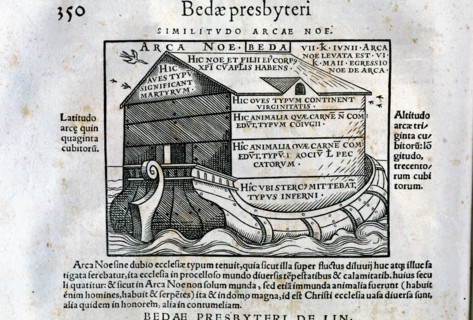 350 Bedæ presbyteri
SIMILITVDO ARCAE NOE.
ARCA NOE. BEDA
VII·K·IVNII·ARCA
NOE LEVATA EST·VI·
K·MAII·EGRESSIO
NOE DE ARCA·
HIC NOE ET FILII EI9 CORP9
XPĨ CV̄ APLIS HABENS·
HIC
AVES TYPV̄
SIGNIFICANT
MARTYRVM·
HIC OVES TYPVM CONTINENT
VIRGINITATIS·
HIC ANIMALIA QVÆ CARNĒ N̄ COM
EDV̄T, TYPVM CŌIVGII·
HIC ANIMALIA QVÆ CARNĒ COM
EDV̄T, TYPV̄
PEC
CATORVM·
HIC VBI STERC9 MITTEBAT,
TYPVS INFERNI·
Latitudo
arcę quin
quaginta
cubitorū.
Altitudo
arcæ tri/
ginta cu/
bitorū: lō
gitudo,
trecento/
rum cubi
torum.
Arca Noe sine dubio ecclesiæ typum tenuit, quia sicut illa super fluctus diluuij huc atq; illuc fa
tigata ferebatur, ita ecclesia in procelloso mundo diuersis tēpestatibus & calamitatib. huius secu
li quatitur: & sicut in Arca Noe non solum munda, sed etiā immunda animalia fuerunt (habuit
enim homines, habuit & serpētes) ita & in domo magna, id est Christi ecclesia uasa diuersa sunt,
alia quidem in honorem, alia in contumeliam.
BEDAE PRESBYTERI DE LIN-